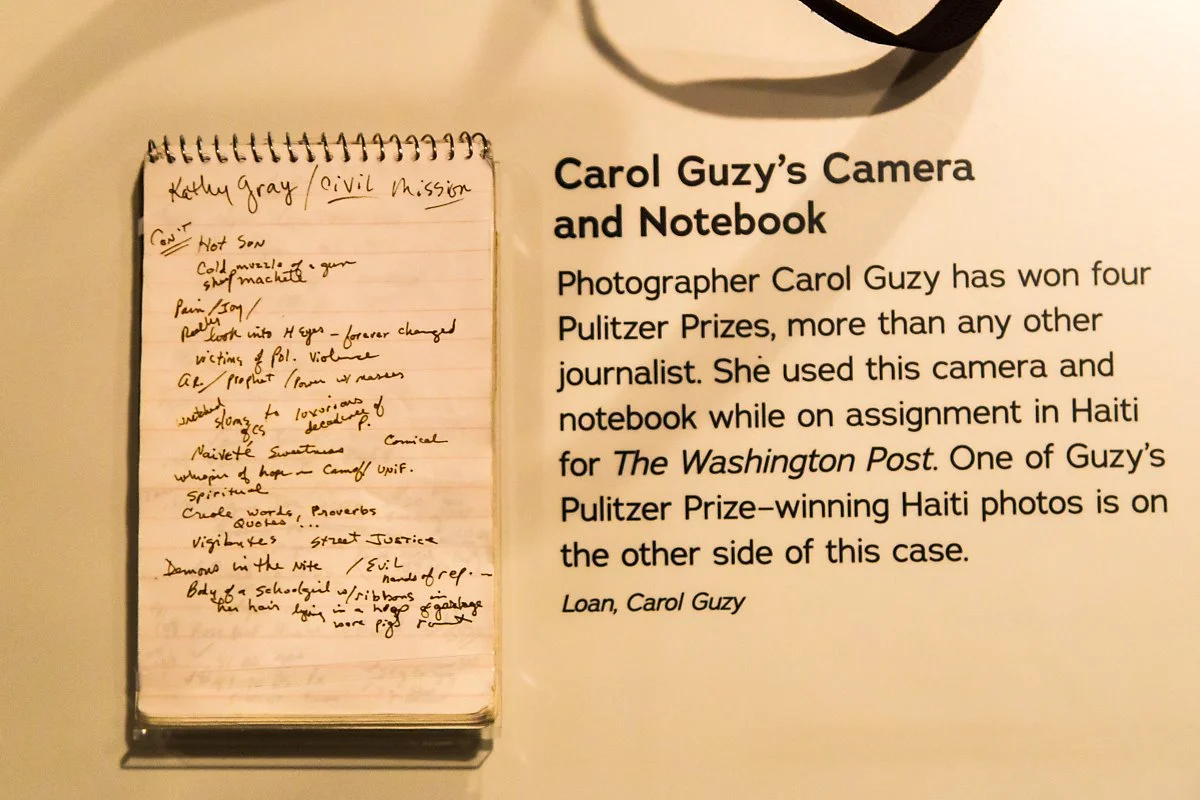 Kathy Gray / Civil Mission
Con't
Hot Sun
Cold muzzle of a gun
sharp machete
Pain/Joy/
Really
look into H Eyes - forever changed
victims of Pol. Violence
/Prophet /Power w/ masses
wretched slums to luxurious
of CS decadence of P.
Naiveté Sweetness Comical
whisper of hope - Camof/ UNIF.
Spiritual
Creole words, Proverbs
Quotes!...
Vigilantes Street Justice
Demons in the Nite /Evil
hands of rep.
Body of a Schoolgirl w/ribbons in
her hair lying in a heap of garbage
were pigs
Carol Guzy's Camera
and Notebook
Photographer Carol Guzy has won four
Pulitzer Prizes, more than any other
journalist. She used this camera and
notebook while on assignment in Haiti
for The Washington Post. One of Guzy's
Pulitzer Prize–winning Haiti photos is on
the other side of this case.
Loan, Carol Guzy